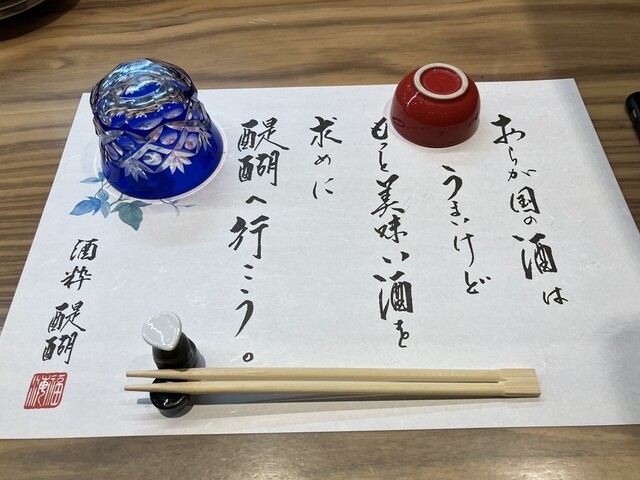 おらが国の酒は
うまいけど
もっと美味い酒を
求めに
醍醐へ行こう。
酒粋 醍醐